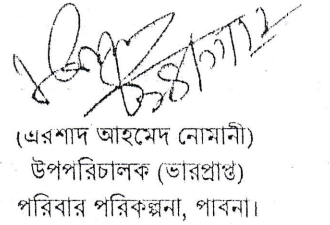 (এরশাদ আহমেদ নোমানী)
উপপরিচালক (ভারপ্রাপ্ত)
পরিবার পরিকল্পনা, পাবনা।